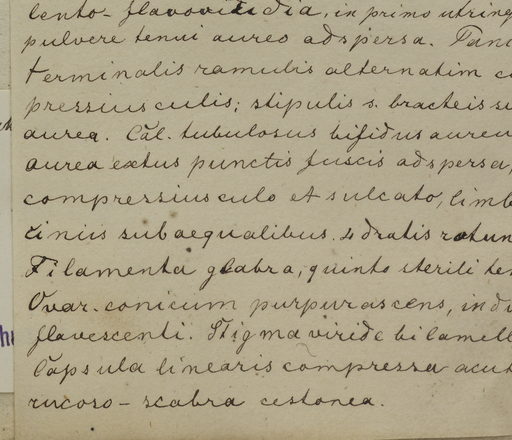 lento-flavoviridia, in primo utrinq
pulvere tenui aureo adspersa. Pani
terminalis ramulis alternatim co
pressiusculis; stipulis s. bracteis su
aurea. Cal. tubulosus bifidus aureu
aurea extus punctis fuscis adspersa,
compressiusculo et sulcato, limb
ciniis subaequalibus. 4 dratis rotun
Filamenta glabra, quinto sterili ten
Ovar. conicum purpurascens, indu
flavescenti. Stigma viride bilamell
Capsula linearis compressa acut
rucoso-scabra cestonea.